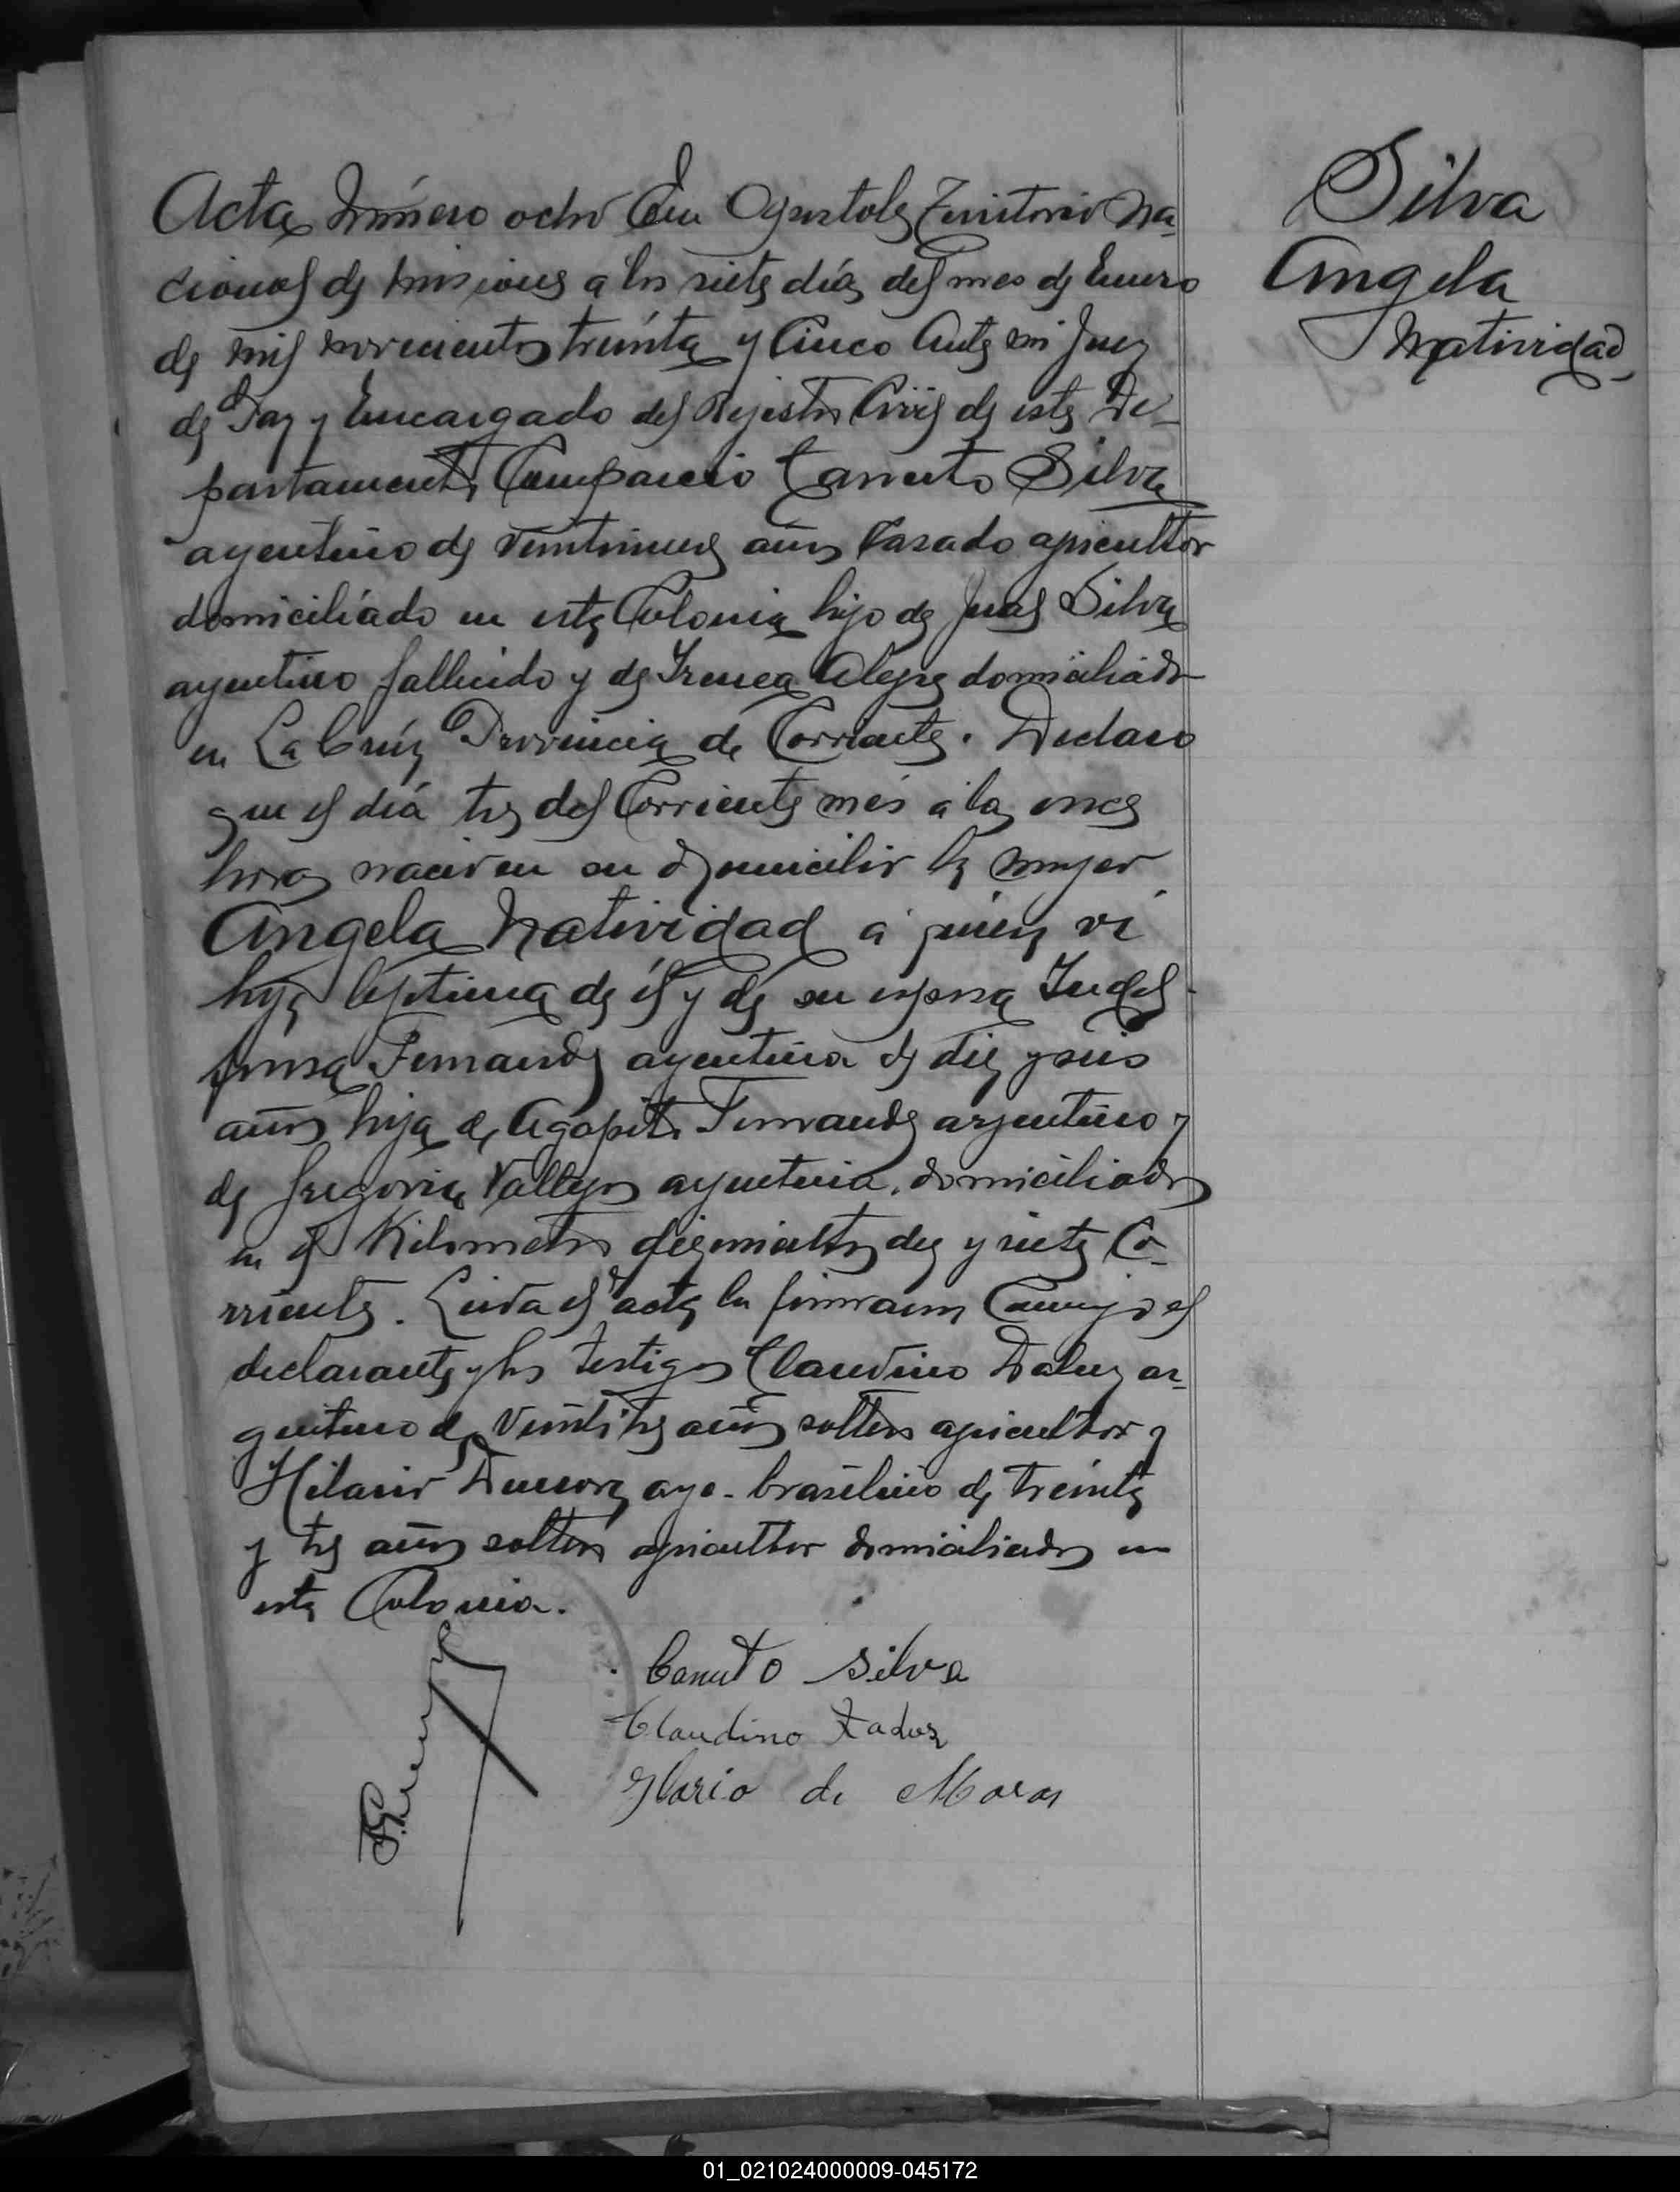 Acta Número ocho En Apostoles Territorio Na-
cional de Misiones a los siete días del mes de Enero
de mil novecientos treinta y Cinco Ante mi Juez
de Paz y Encargado del Rejistro Civil de este De-
partamento Comparecio Canuto Silva
argentino de veintinueve años Casado agricultor
domiciliado en esta Colonia hijo de Juan Silva
argentino fallecido y de Irenea Alegre domiciliado
en La Cruz Provincia de Corrientes. Declaro
que el día tres del Corriente més á las once
horas nació en su domicilio la mujer
Angela Natividad á quien vi
hija lejitima de él y de su esposa Indel
Fernandez argentina de diez y seis
años hija de Agapito Fernandez argentino y
de Gregoria Vallejos argentina, domiciliados
en el Kilometro diez y siete Co-
rrientes. Leida el acta la firmaron Conmigo el
declarante y los testigos Claudino Daluz ar-
gentino de veintitres años soltero agricultor y
Hilario brasilero de treinta
y tres años soltero agricultor domiciliados en
esta Colonia.
Canuto Silva
Claudino
Ilario de
Silva
Angela
Natividad
01_021024000009-045172